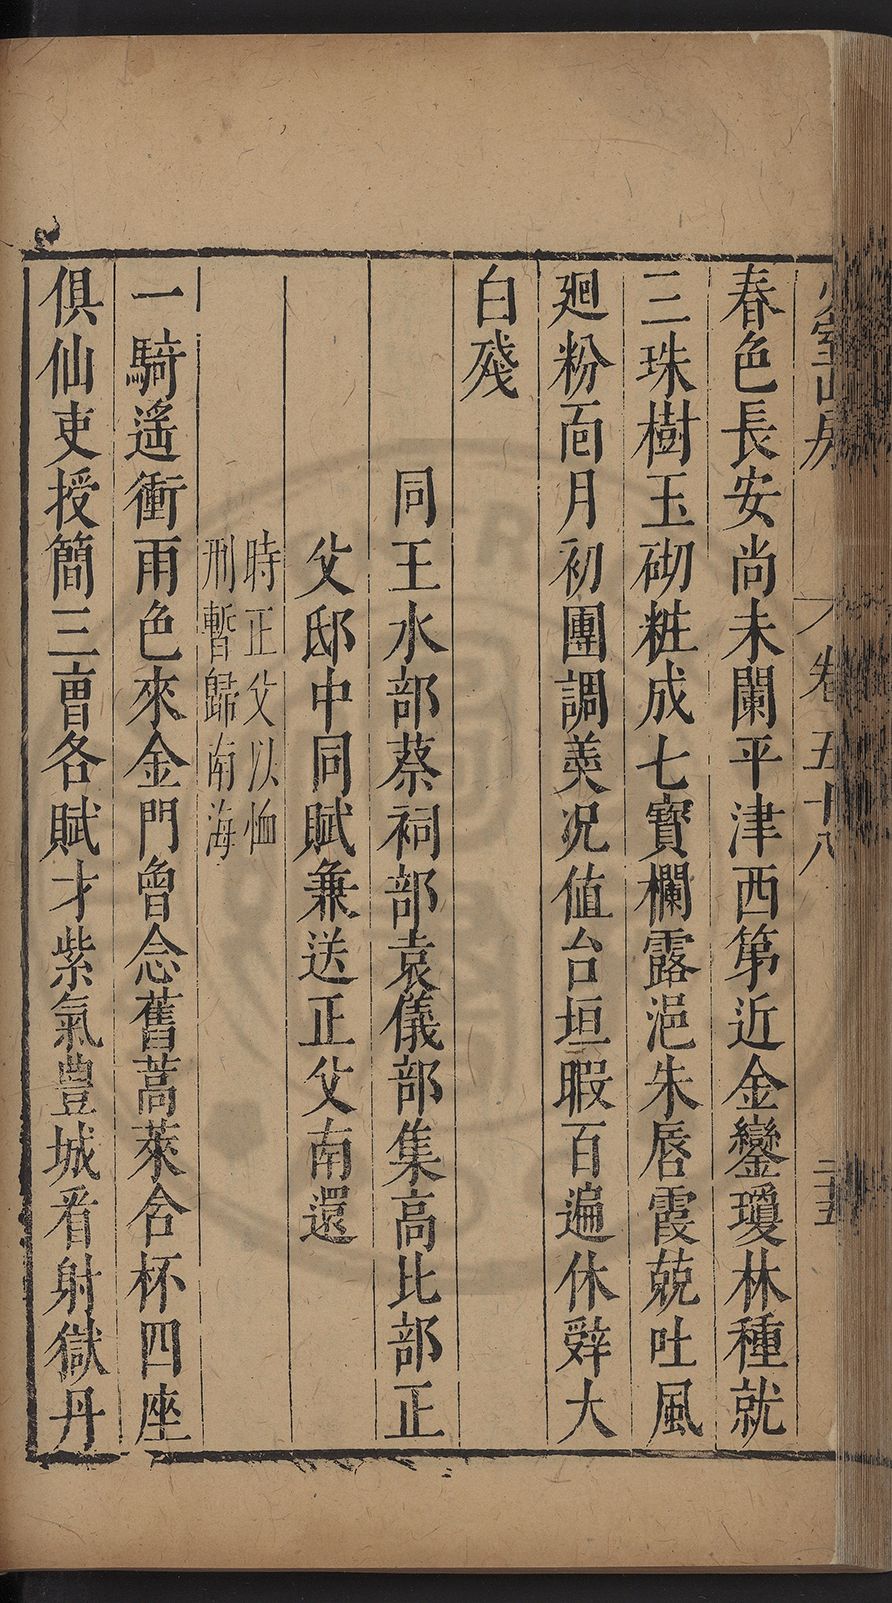 少室山房
卷五十八
二十五
春色長安尚未闌平津西第近金鑾瓊林種就
三珠樹玉砌粧成七寶欄露浥朱唇霞兢吐風
廻粉面月初團調羮况值台垣暇百遍休辤大
白殘
同王水部蔡祠部袁儀部集高比部正
父邸中同賦兼送正父南還
時正父以恤
刑暫歸南海
一騎遥衝雨色來金門曾念舊蒿萊含杯四座
俱仙吏授簡三曹各賦才紫氣豊城看射獄丹